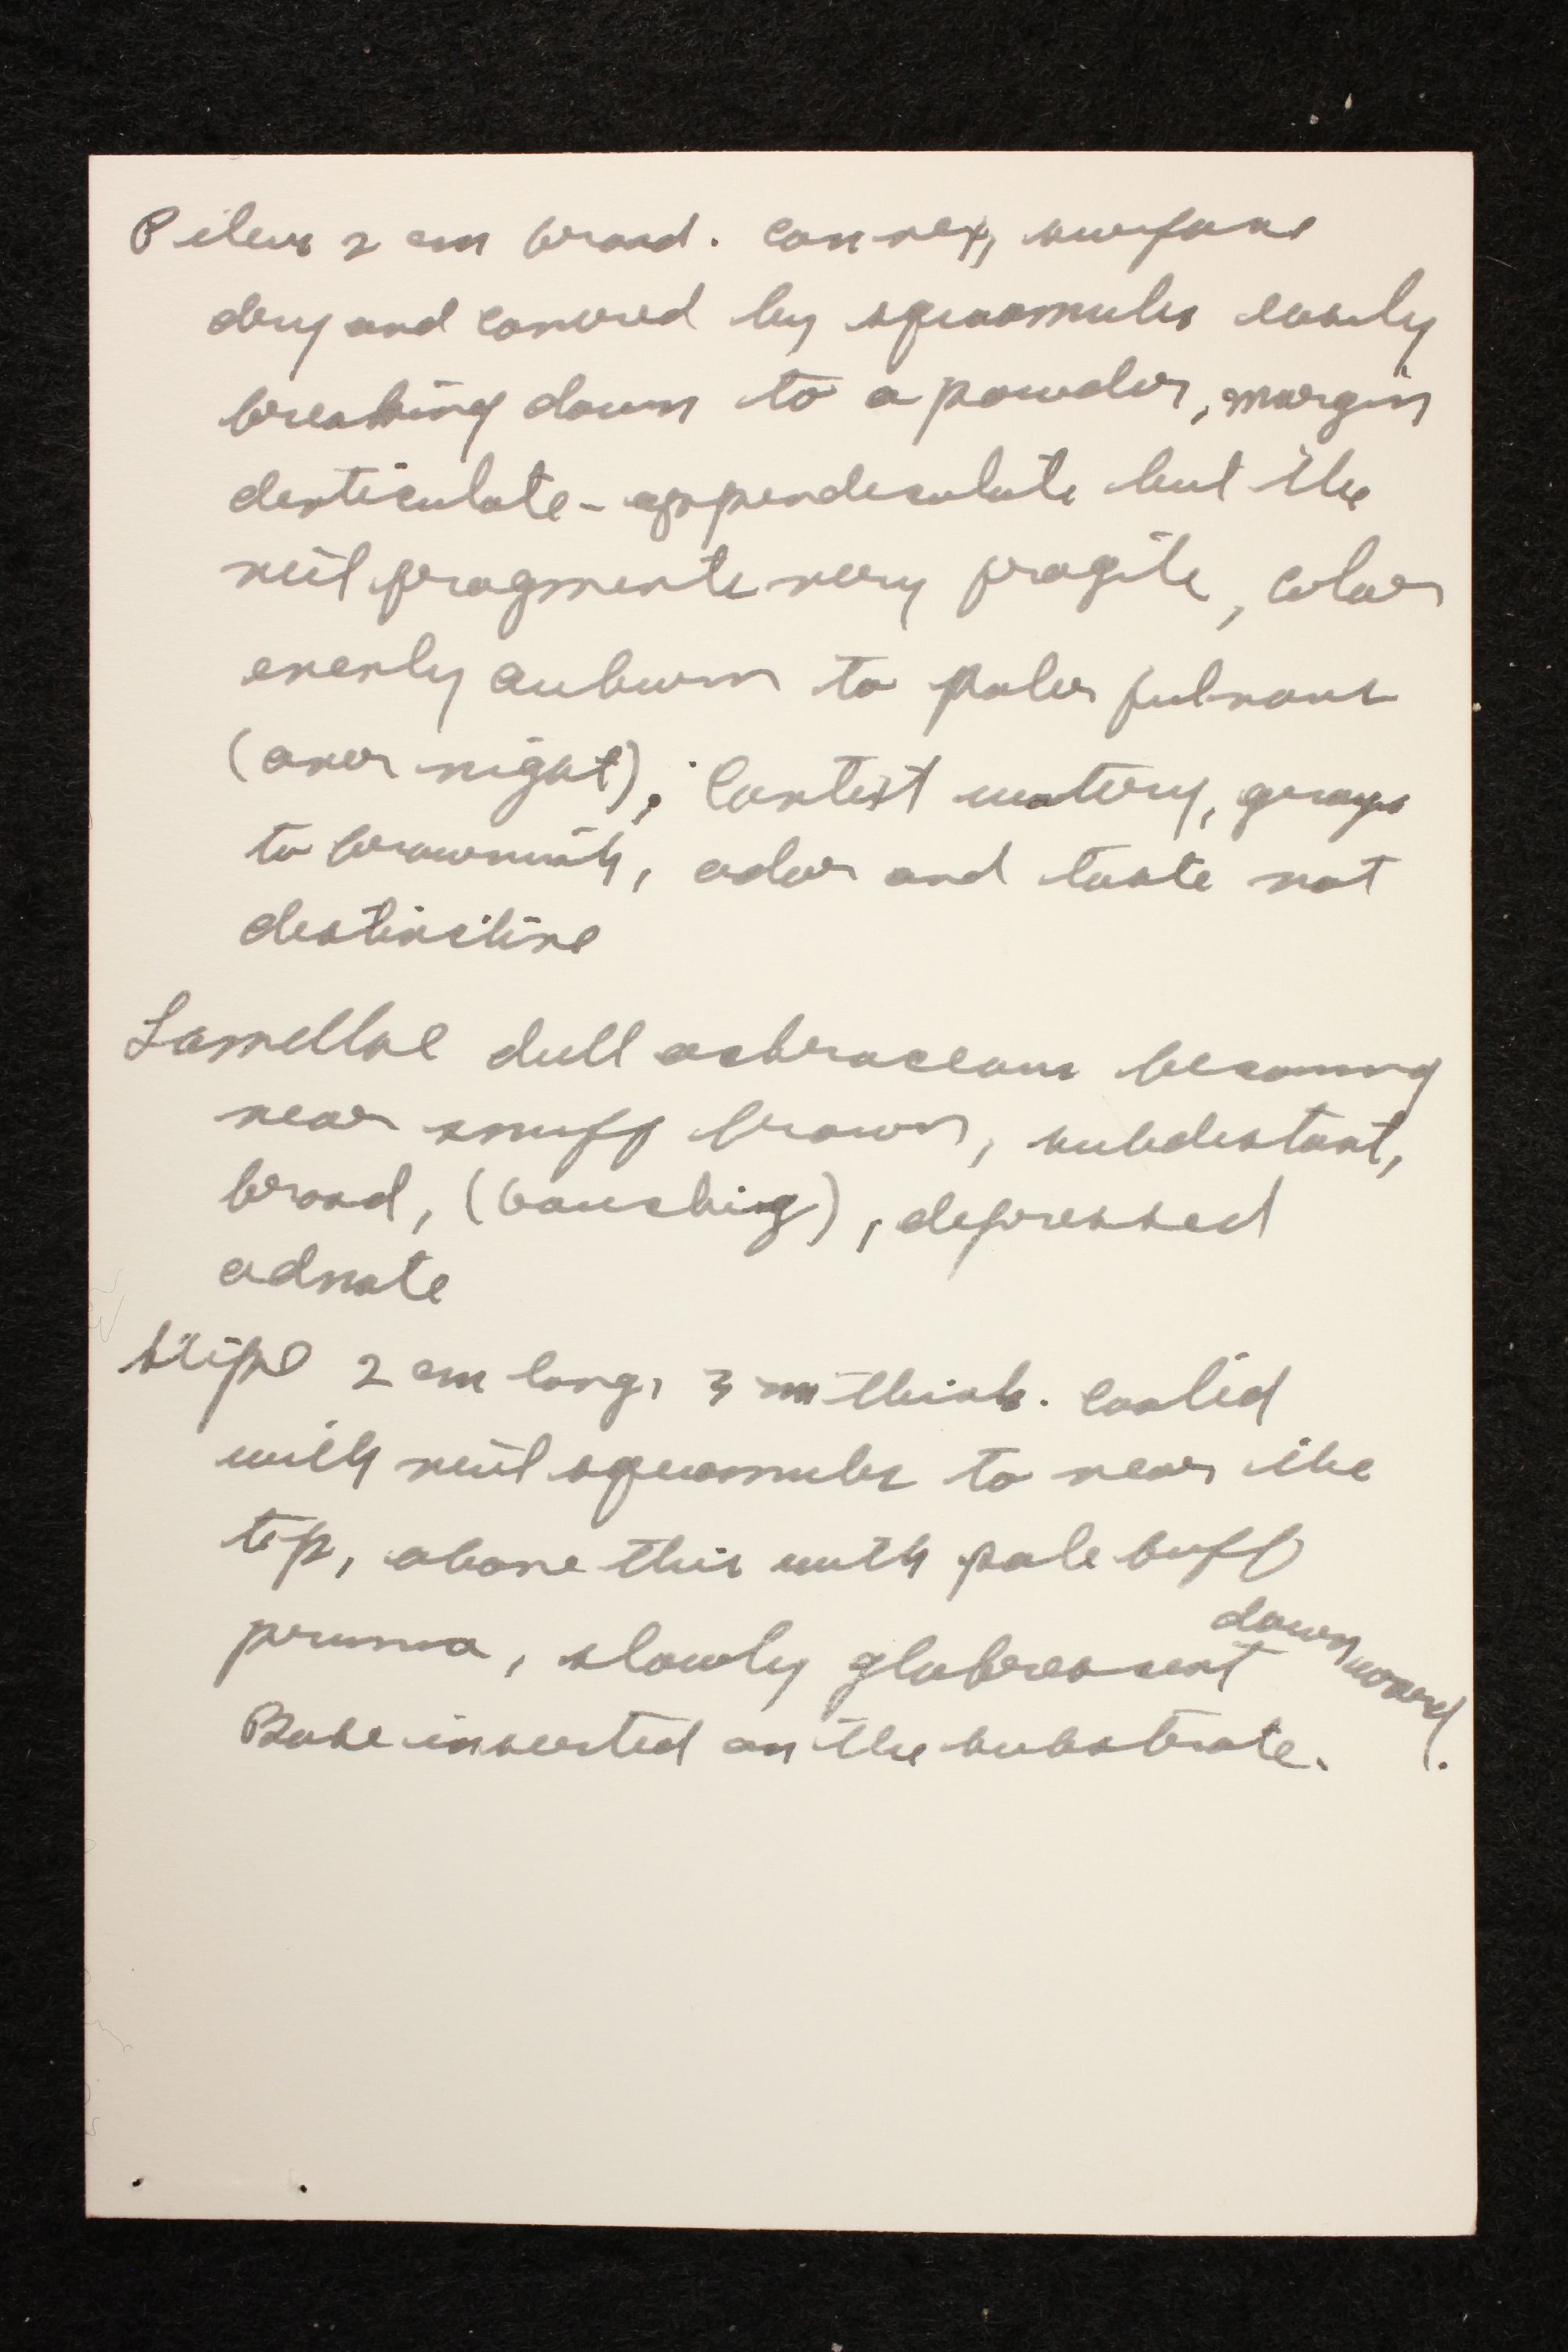 Pileus 2 cm broad. convex, surface
dry and covered by squamules easily
breaking down to a powder, margin
denticulate-appendiculate but the
veil fragments very fragile, color
evenly auburn to paler fulvous
(over night); Context watery, grayish
to brownish, odor and taste not
distinctive
Lamellae dull ochraceous becoming
near snuff brown, subdistant,
broad, (bouching), depressed
adnate
Stipe 2 cm long, 3 mm thick. Coated
with veil squamules to near the
top, above this with pale buff
pruina, slowly glabrescent downward.
Base inserted on the substrate.